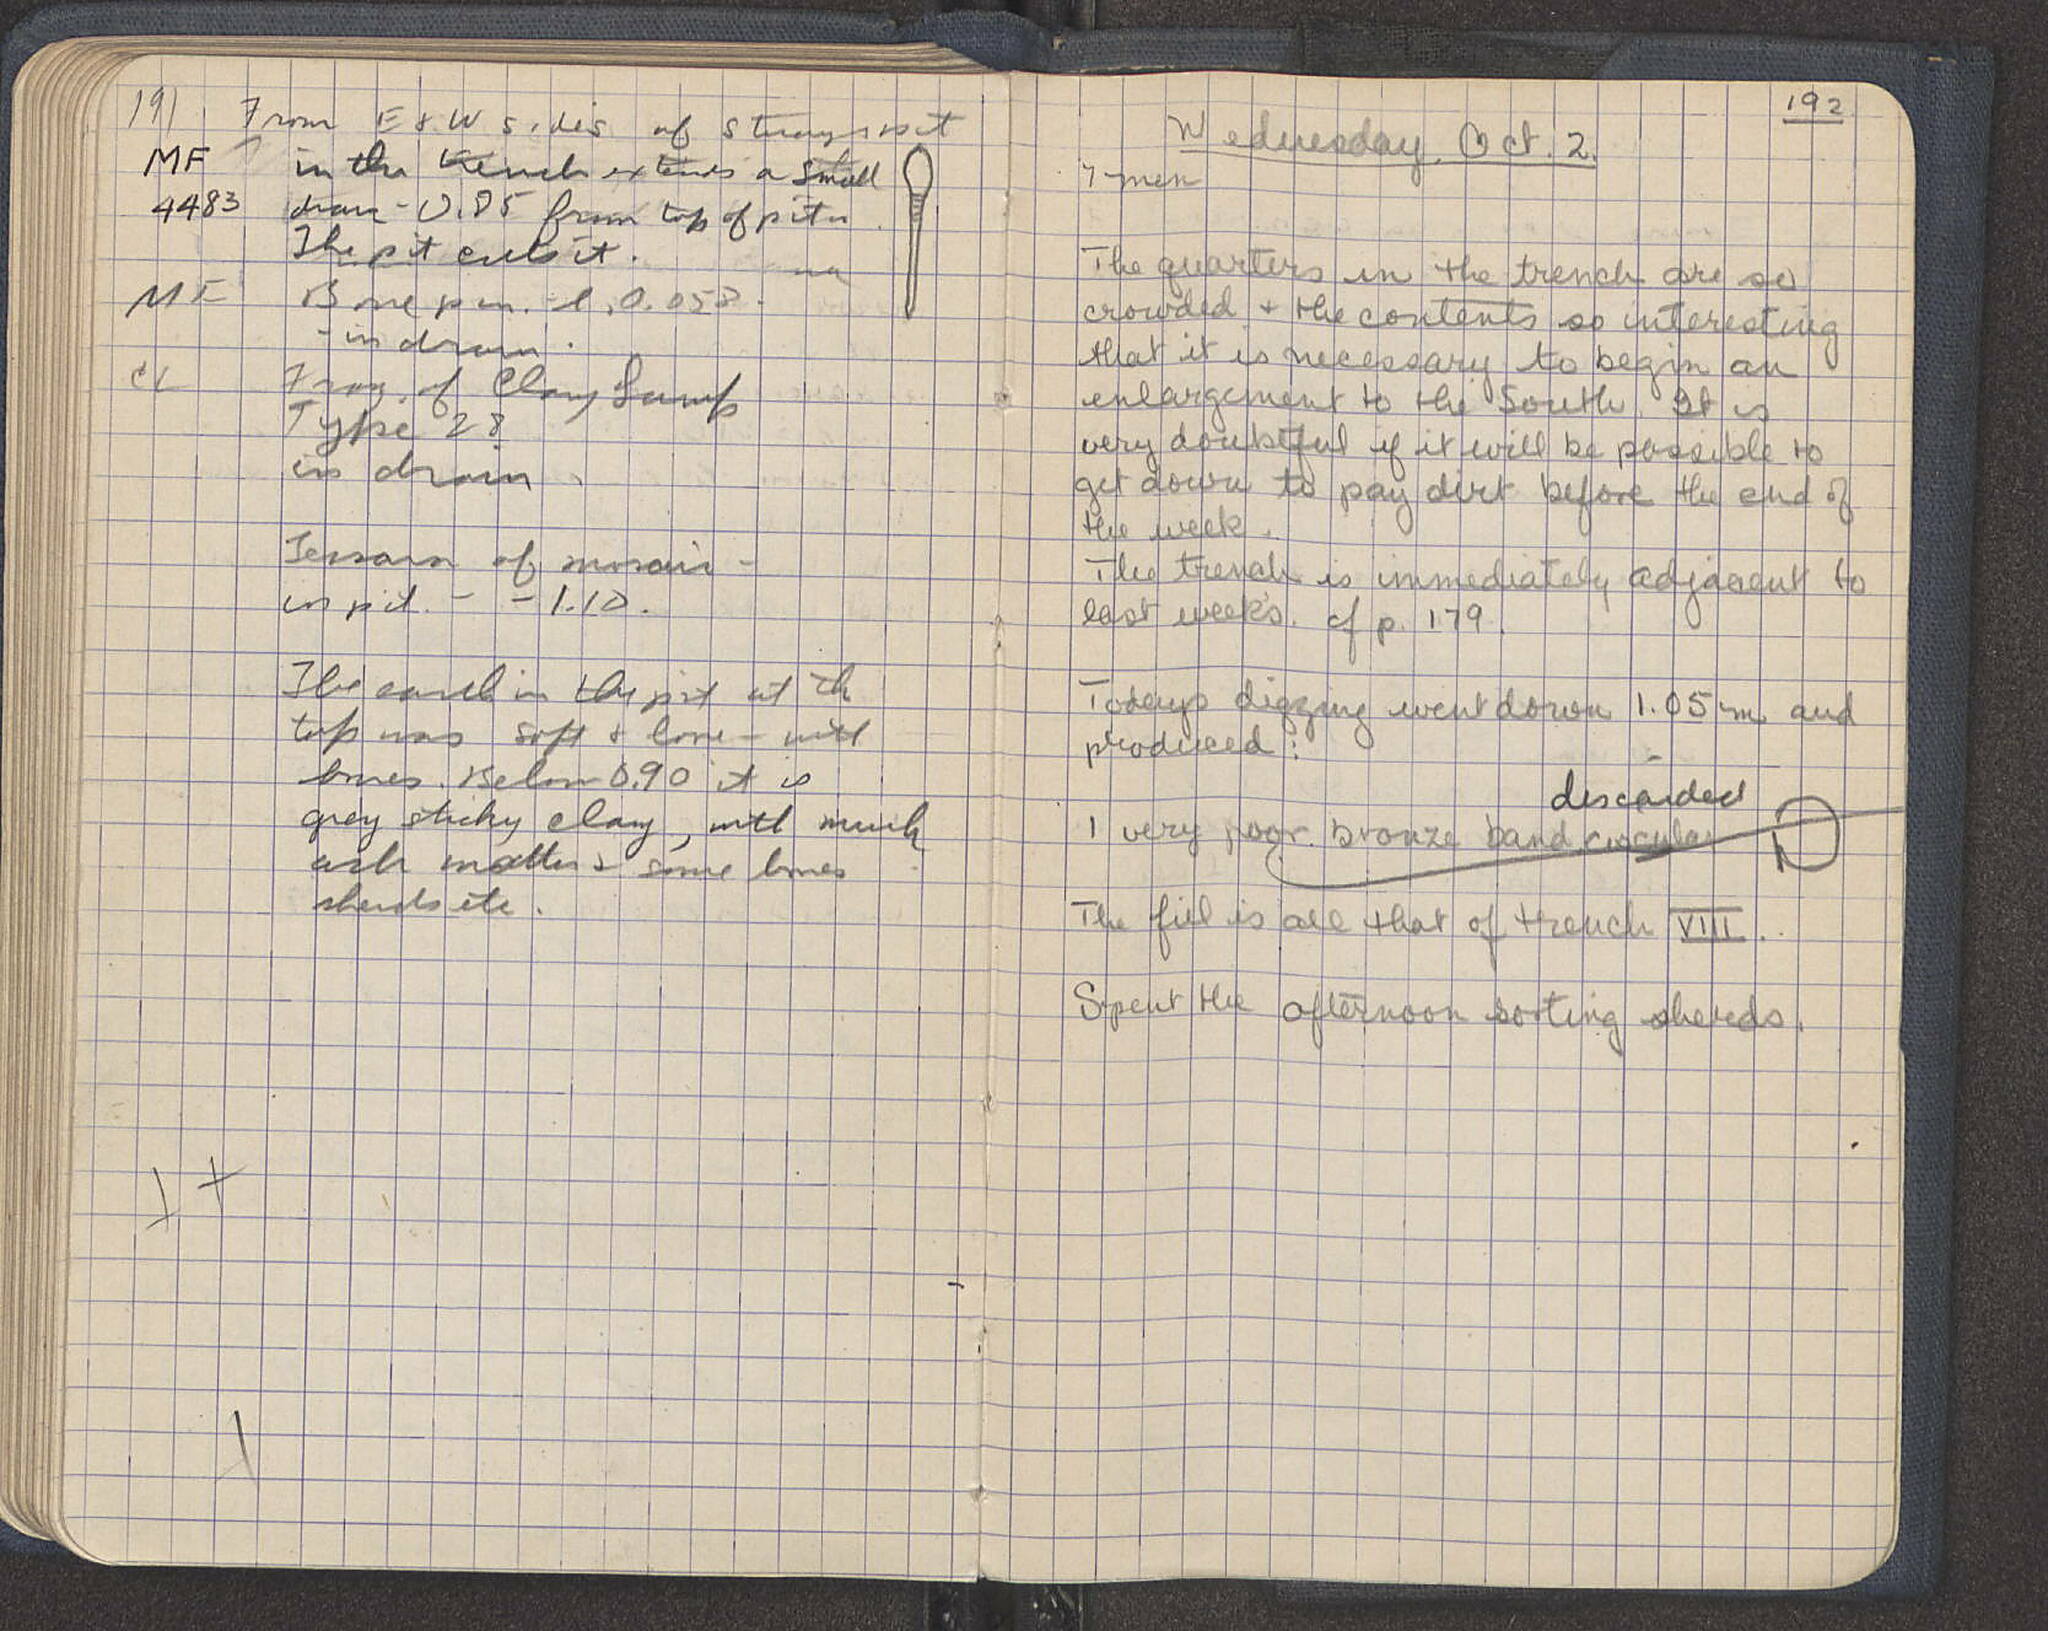 191. From E & W sides of strays pit
MF in the trench extends a small
4483 drain - 0.85 from top of pit.
The pit cuts it.
MF Bone pin. - l. 0.058.
- in drain.
CL Frag. of Clay Lamp
Type 28
in drain.
Tessara of mosaic -
in pit. - - 1.10.
The earth in the pit at the
top was soft & loose - with
bones. Below 0.90 it is
grey sticky clay, with much
ash matter & some bones
sherds etc.
192
Wednesday. Oct. 2.
7 men
The quarters in the trench are so
crowded + the contents so interesting
that it is necessary to begin an
enlargement to the South. It is
very doubtful if it will be possible to
get down to pay dirt before the end of
the week.
The trench is immediately adjacent to
last week's. cf p. 179.
Todays digging went down 1.05 m and
produced:
discarded
1 very poor bronze band circular
The fill is all that of trench VIII.
Spent the afternoon sorting sherds.